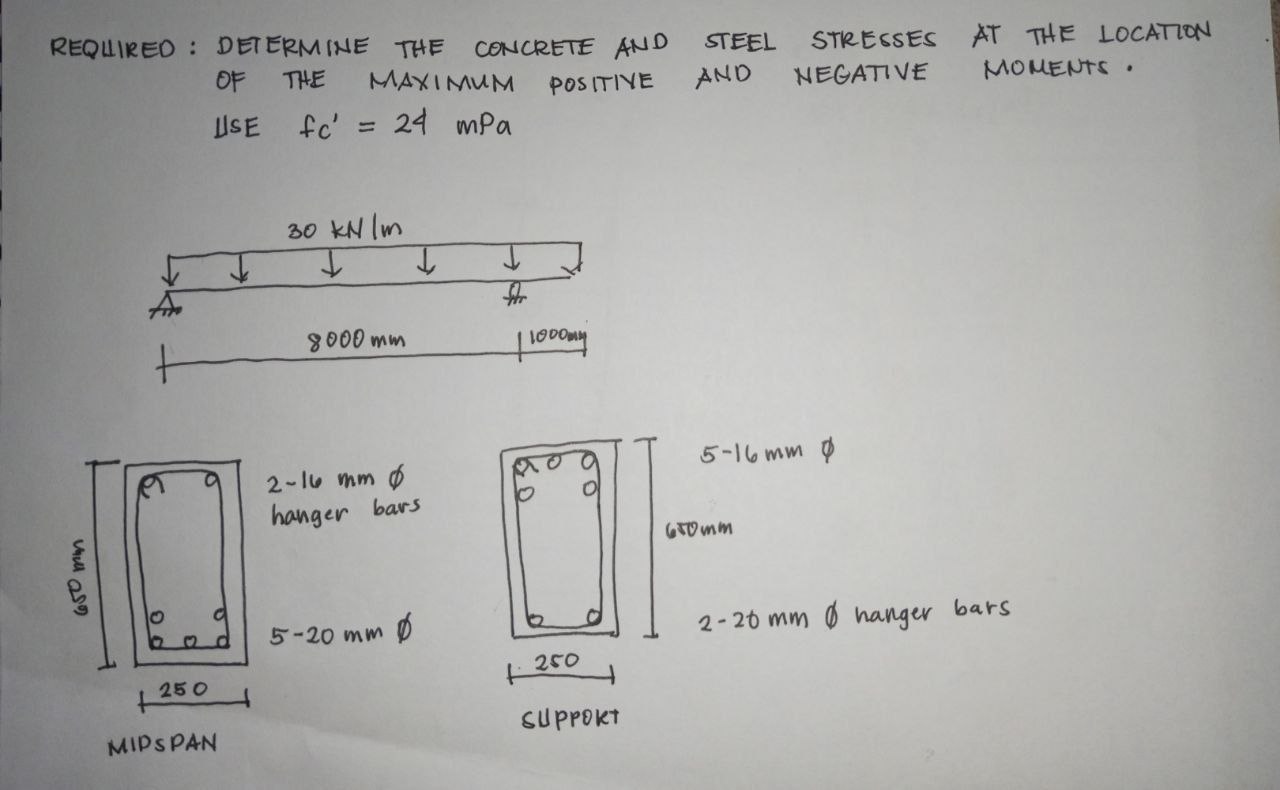 REQUIRED : DETERMINE THE CONCRETE AND STEEL STRESSES AT THE LOCATION
OF THE MAXIMUM POSITIVE AND NEGATIVE MOMENTS.
USE fc' = 24 mPa
30 kN/m
8000 mm
1000mm
2-16 mm Ø
hanger bars
5-20 mm Ø
650 mm
250
MIDSPAN
5-16 mm Ø
650mm
2-20 mm Ø hanger bars
250
SUPPORT